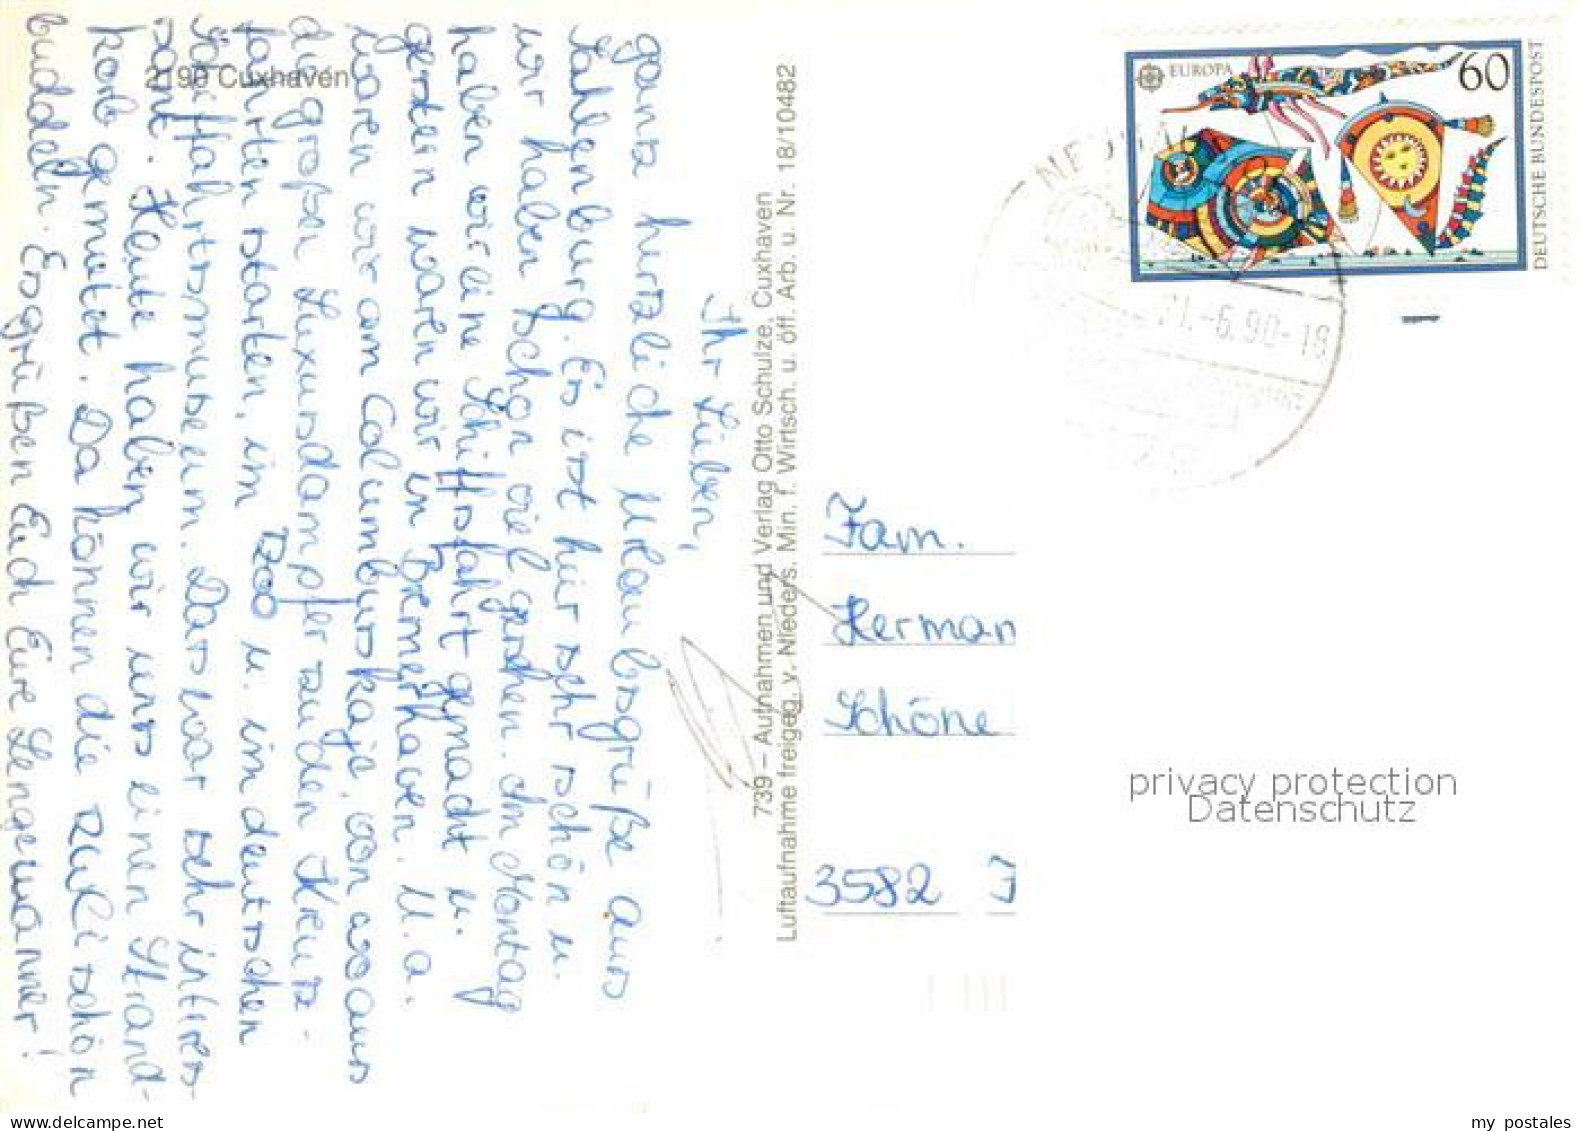 2190 Cuxhaven
Ihr Lieben,
ganz herzliche Urlaubsgrüße aus
Sahlenburg. Es ist hier sehr schön u.
wir haben schon viel gesehen. Am Montag
haben wir eine Schiffsfahrt gemacht u.
gestern waren wir in Bremerhaven. U. a.
waren wir am Columbuskaje, von wo aus
die großen Luxusdampfer zu den Kreuz-
fahrten starten, im Zoo u. im deutschen
Schiffahrtsmuseum. Das war sehr interes-
sant. Heute haben wir uns einen Strand-
korb gemietet. Da können die zwei schön
buddeln. Es grüßen Euch Eure Lengemanner!
739 – Aufnahmen und Verlag Otto Schulze, Cuxhaven
Luftaufnahme freigeg. v. Nieders. Min. f. Wirtsch. u. öff. Arb. u. Nr. 18/10482
EUROPA
60
DEUTSCHE BUNDESPOST
-6.90-18
Fam.
Herman
Schöne
3582
privacy protection
Datenschutz
my postales